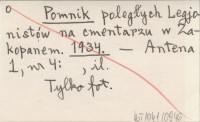 o
Pomnik poległych Legjo-
nistów na cmentarzu w Za-
kopanem. 1934. — Antena
1, nr 4: , il.
Tylko fot.